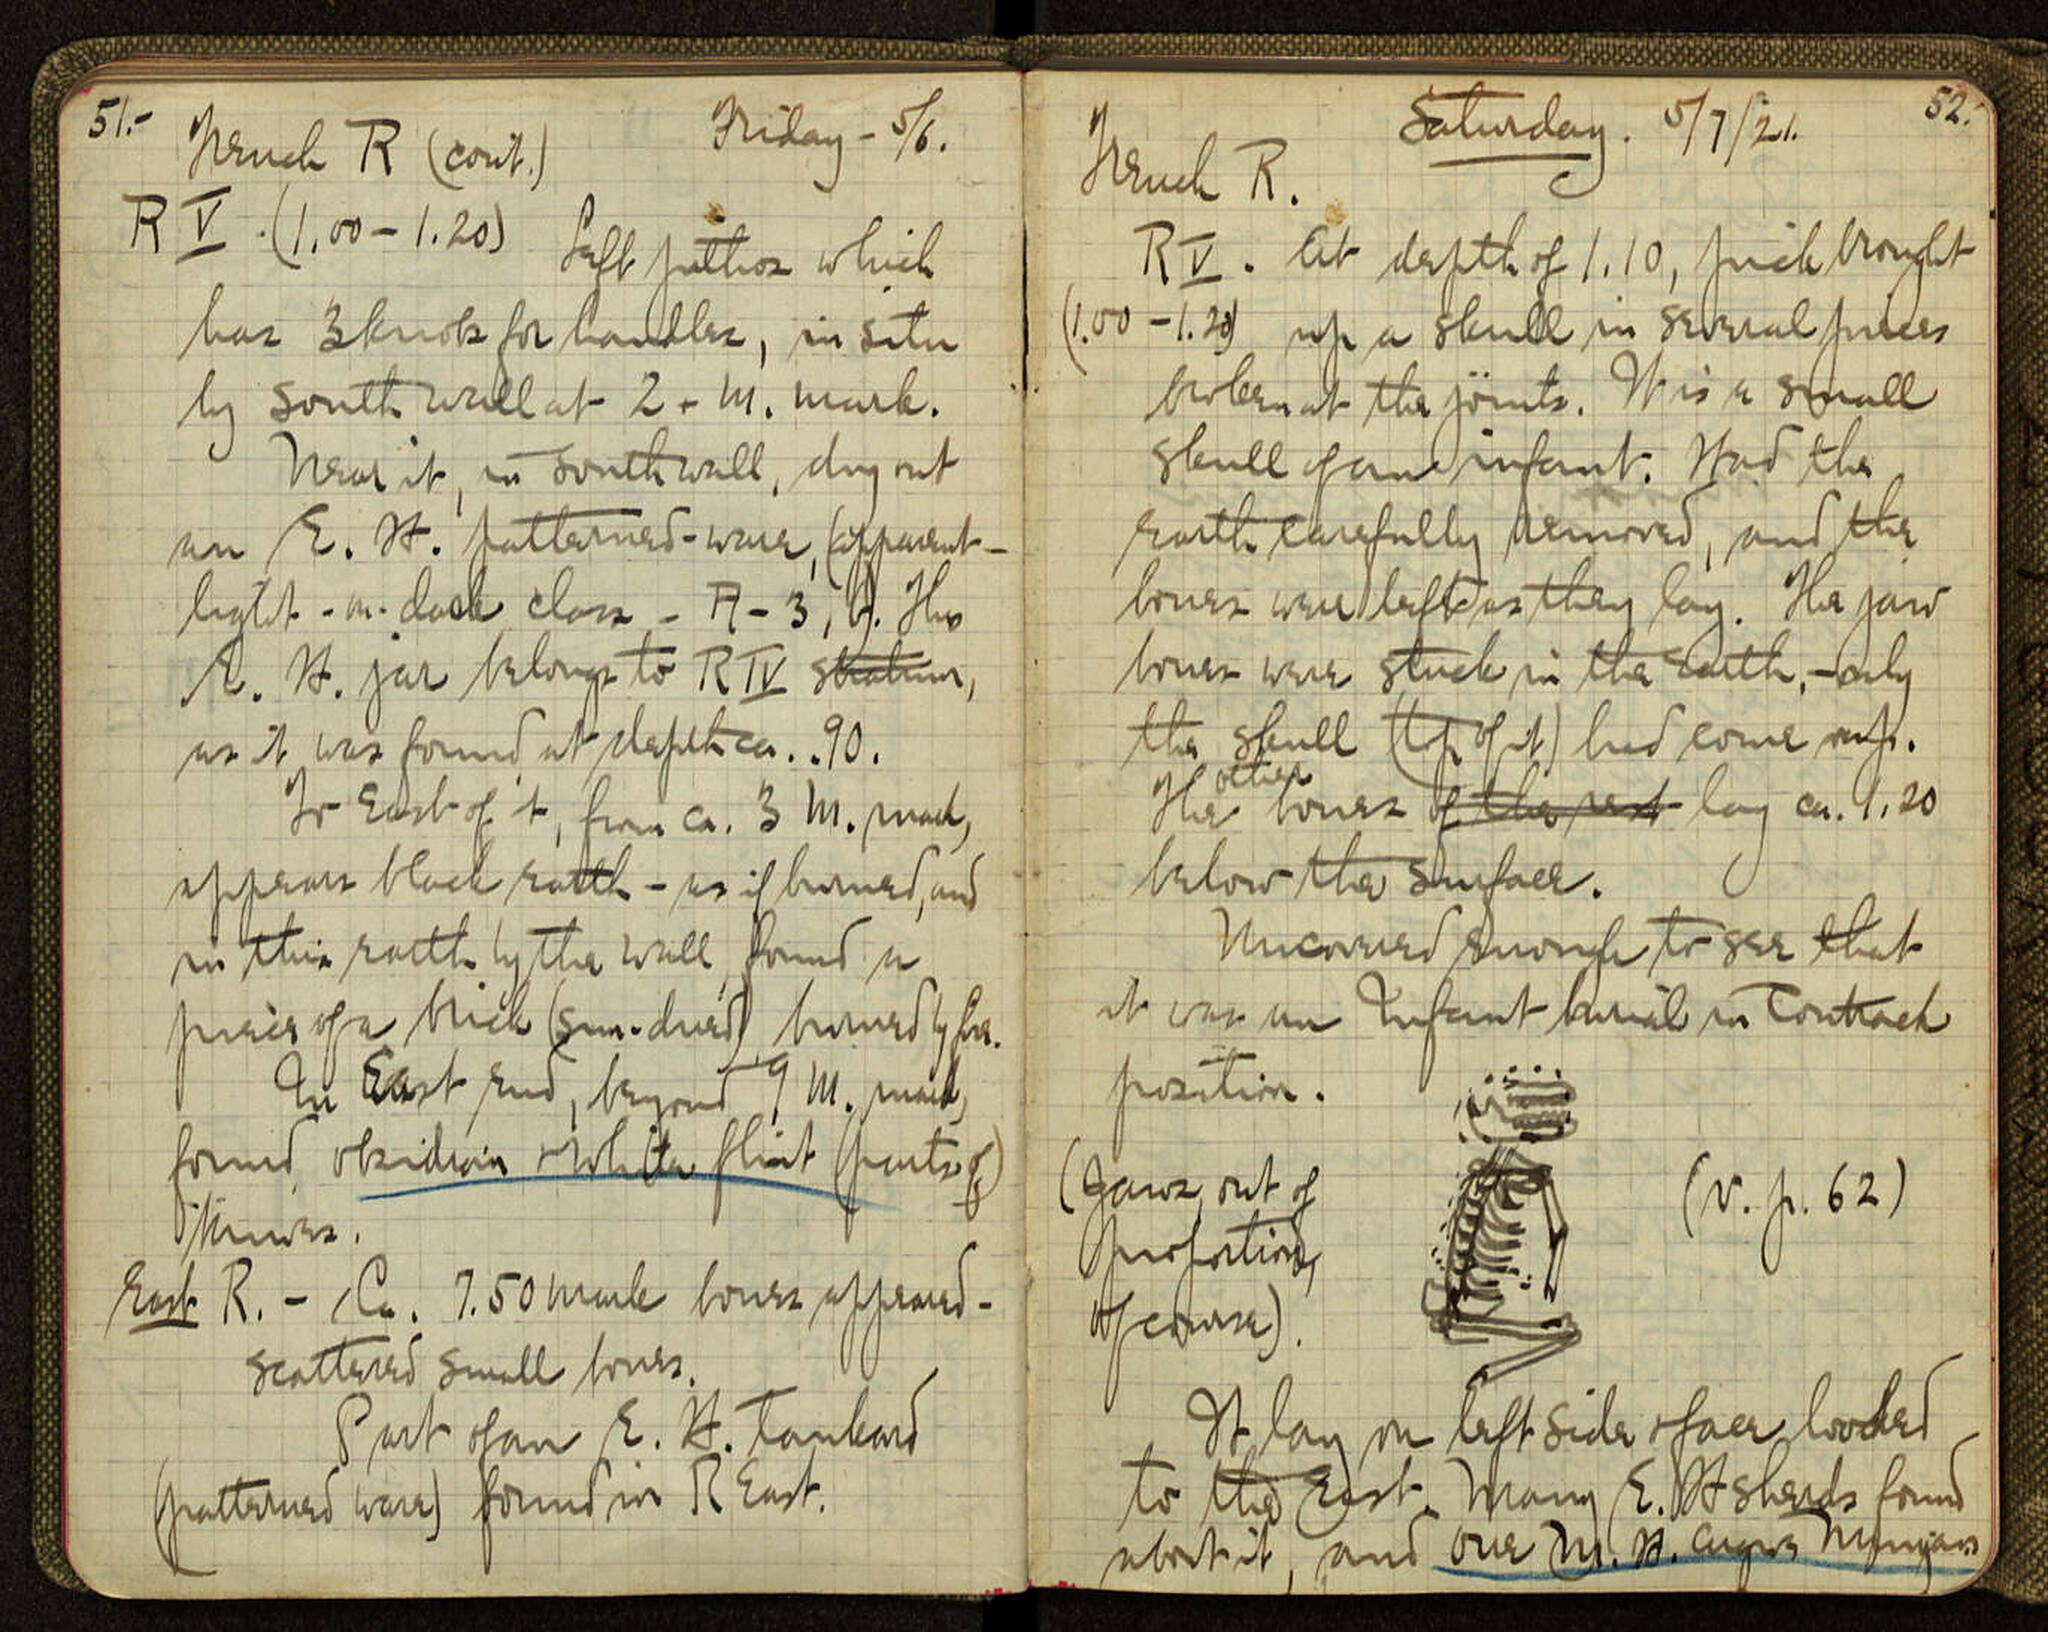 51.-
Trench R (cont.) Friday - 5/6.
R V. (1.00 - 1.20) Left pithos which
has 3 knobs for handles, in situ
by south wall at 2+ M. mark.
Near it, in south wall, dug out
an E. H. patterned-ware, (apparent-
light-on-dark class - A-3, b). This
E. H. jar belongs to R IV stratum,
as it was found at depth ca. .90.
To East of it, from ca. 3 M. mark,
appears black earth - as if burned, and
in this earth by the wall found a
piece of a brick (sun-dried) burned by fire.
In East end, beyond 9 M. mark,
found obsidian + white flint (parts of)
knives.
East R. - Ca. 7.50 mark bones appeared -
scattered small bones.
Part of an E. H. Tankard
(patterned ware) found in R East.
52.-
Saturday. 5/7/21.
Trench R.
R V. At depth of 1.10, pick brought
(1.00 - 1.20) up a skull in several pieces
broken at the joints. It is a small
skull of an infant. Had the
earth carefully removed, and the
bones were left as they lay. The jaw
bones were stuck in the earth, - only
the skull (top of it) had come up.
The other bones of the rest lay ca. 1.20
below the surface.
Uncovered enough to see that
it was an Infant burial in Contracted
position.
(Jaws out of
proportion,
of course).
(v. p. 62)
It lay on left side + face looked
to the East. Many E. H sherds found
about it, and one M. H. Argive Minyan